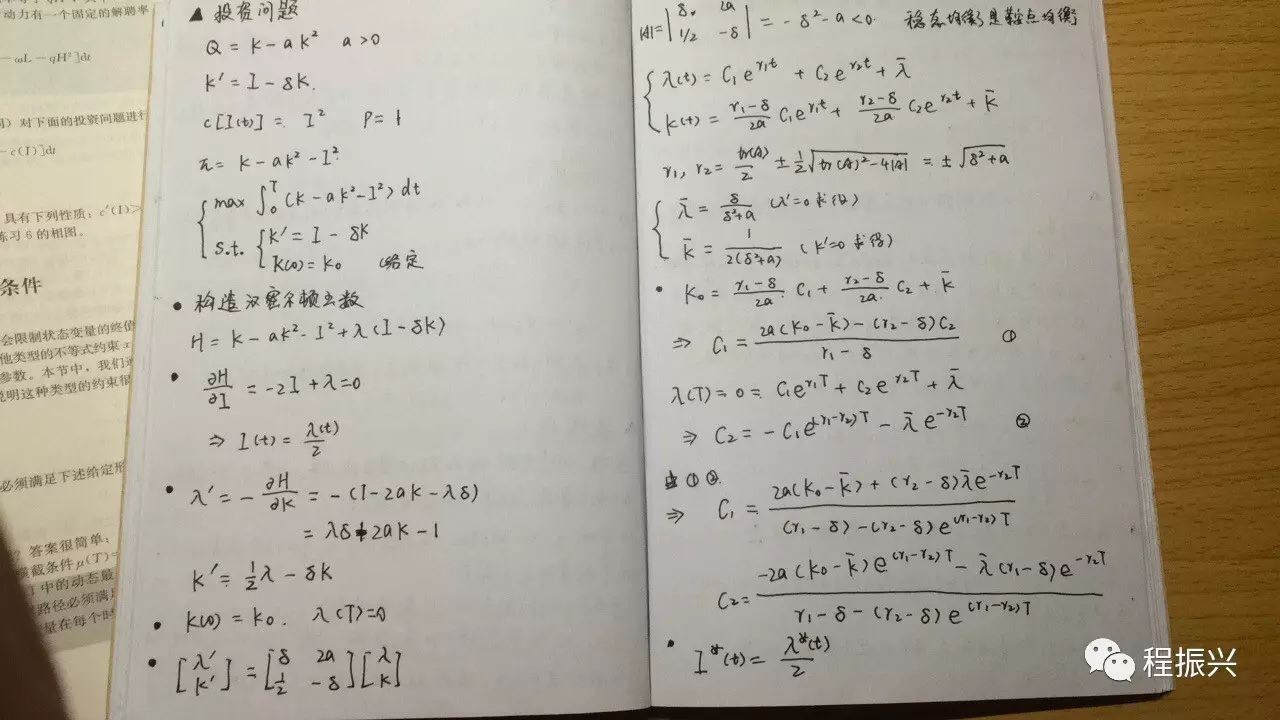 动力有一个固定的解聘率
-ωL-qH²]dt
对下面的投资问题进行
-c(I)]dt
具有下列性质:c'(I)>
练习6的相图。
条件
会限制状态变量的终值
他类型的不等式约束x
参数。本节中,我们
说明这种类型的约束很
必须满足下述给定形
答案很简单:
横截条件μ(T)=
中的动态最
路径必须满足
量在每个时
▲ 投资问题
Q = K - aK² a>0
K' = I - δK.
c[I(t)] = I² P = 1
π = K - aK² - I²
max ∫₀ᵀ (K - aK² - I²) dt
s.t. { K' = I - δK
K(0) = K₀ (给定
• 构造汉密尔顿函数
H = K - aK² - I² + λ(I - δK)
• ∂H/∂I = -2I + λ = 0
⇒ I(t) = λ(t)/2
• λ' = -∂H/∂K = -(1 - 2aK - λδ)
= λδ + 2aK - 1
K' = ½λ - δK
• K(0) = K₀. λ(T) = 0
• [λ' K'] = [δ 2a ½ -δ][λ K]
|A| = |δ 2a 1/2 -δ| = -δ² - a < 0. 稳态均衡是鞍点均衡
{ λ(t) = C₁e^{r₁t} + C₂e^{r₂t} + λ̄
K(t) = (r₁-δ)/2a C₁e^{r₁t} + (r₂-δ)/2a C₂e^{r₂t} + K̄
r₁, r₂ = tr(A)/2 ± ½√(tr(A)² - 4|A|) = ±√(δ²+a)
{ λ̄ = δ/(δ²+a) (λ'=0 求得)
K̄ = 1/(2(δ²+a)) (K'=0 求得)
• K₀ = (r₁-δ)/2a C₁ + (r₂-δ)/2a C₂ + K̄
⇒ C₁ = (2a(K₀-K̄) - (r₂-δ)C₂)/(r₁-δ) ①
λ(T) = 0 = C₁e^{r₁T} + C₂e^{r₂T} + λ̄
⇒ C₂ = -C₁e^{(r₁-r₂)T} - λ̄e^{-r₂T} ②
由①②.
⇒ C₁ = (2a(K₀-K̄) + (r₂-δ)λ̄e^{-r₂T})/((r₁-δ) - (r₂-δ)e^{(r₁-r₂)T})
C₂ = (-2a(K₀-K̄)e^{(r₁-r₂)T} - λ̄(r₁-δ)e^{-r₂T})/(r₁-δ - (r₂-δ)e^{(r₁-r₂)T})
• I*(t) = λ*(t)/2
程振兴